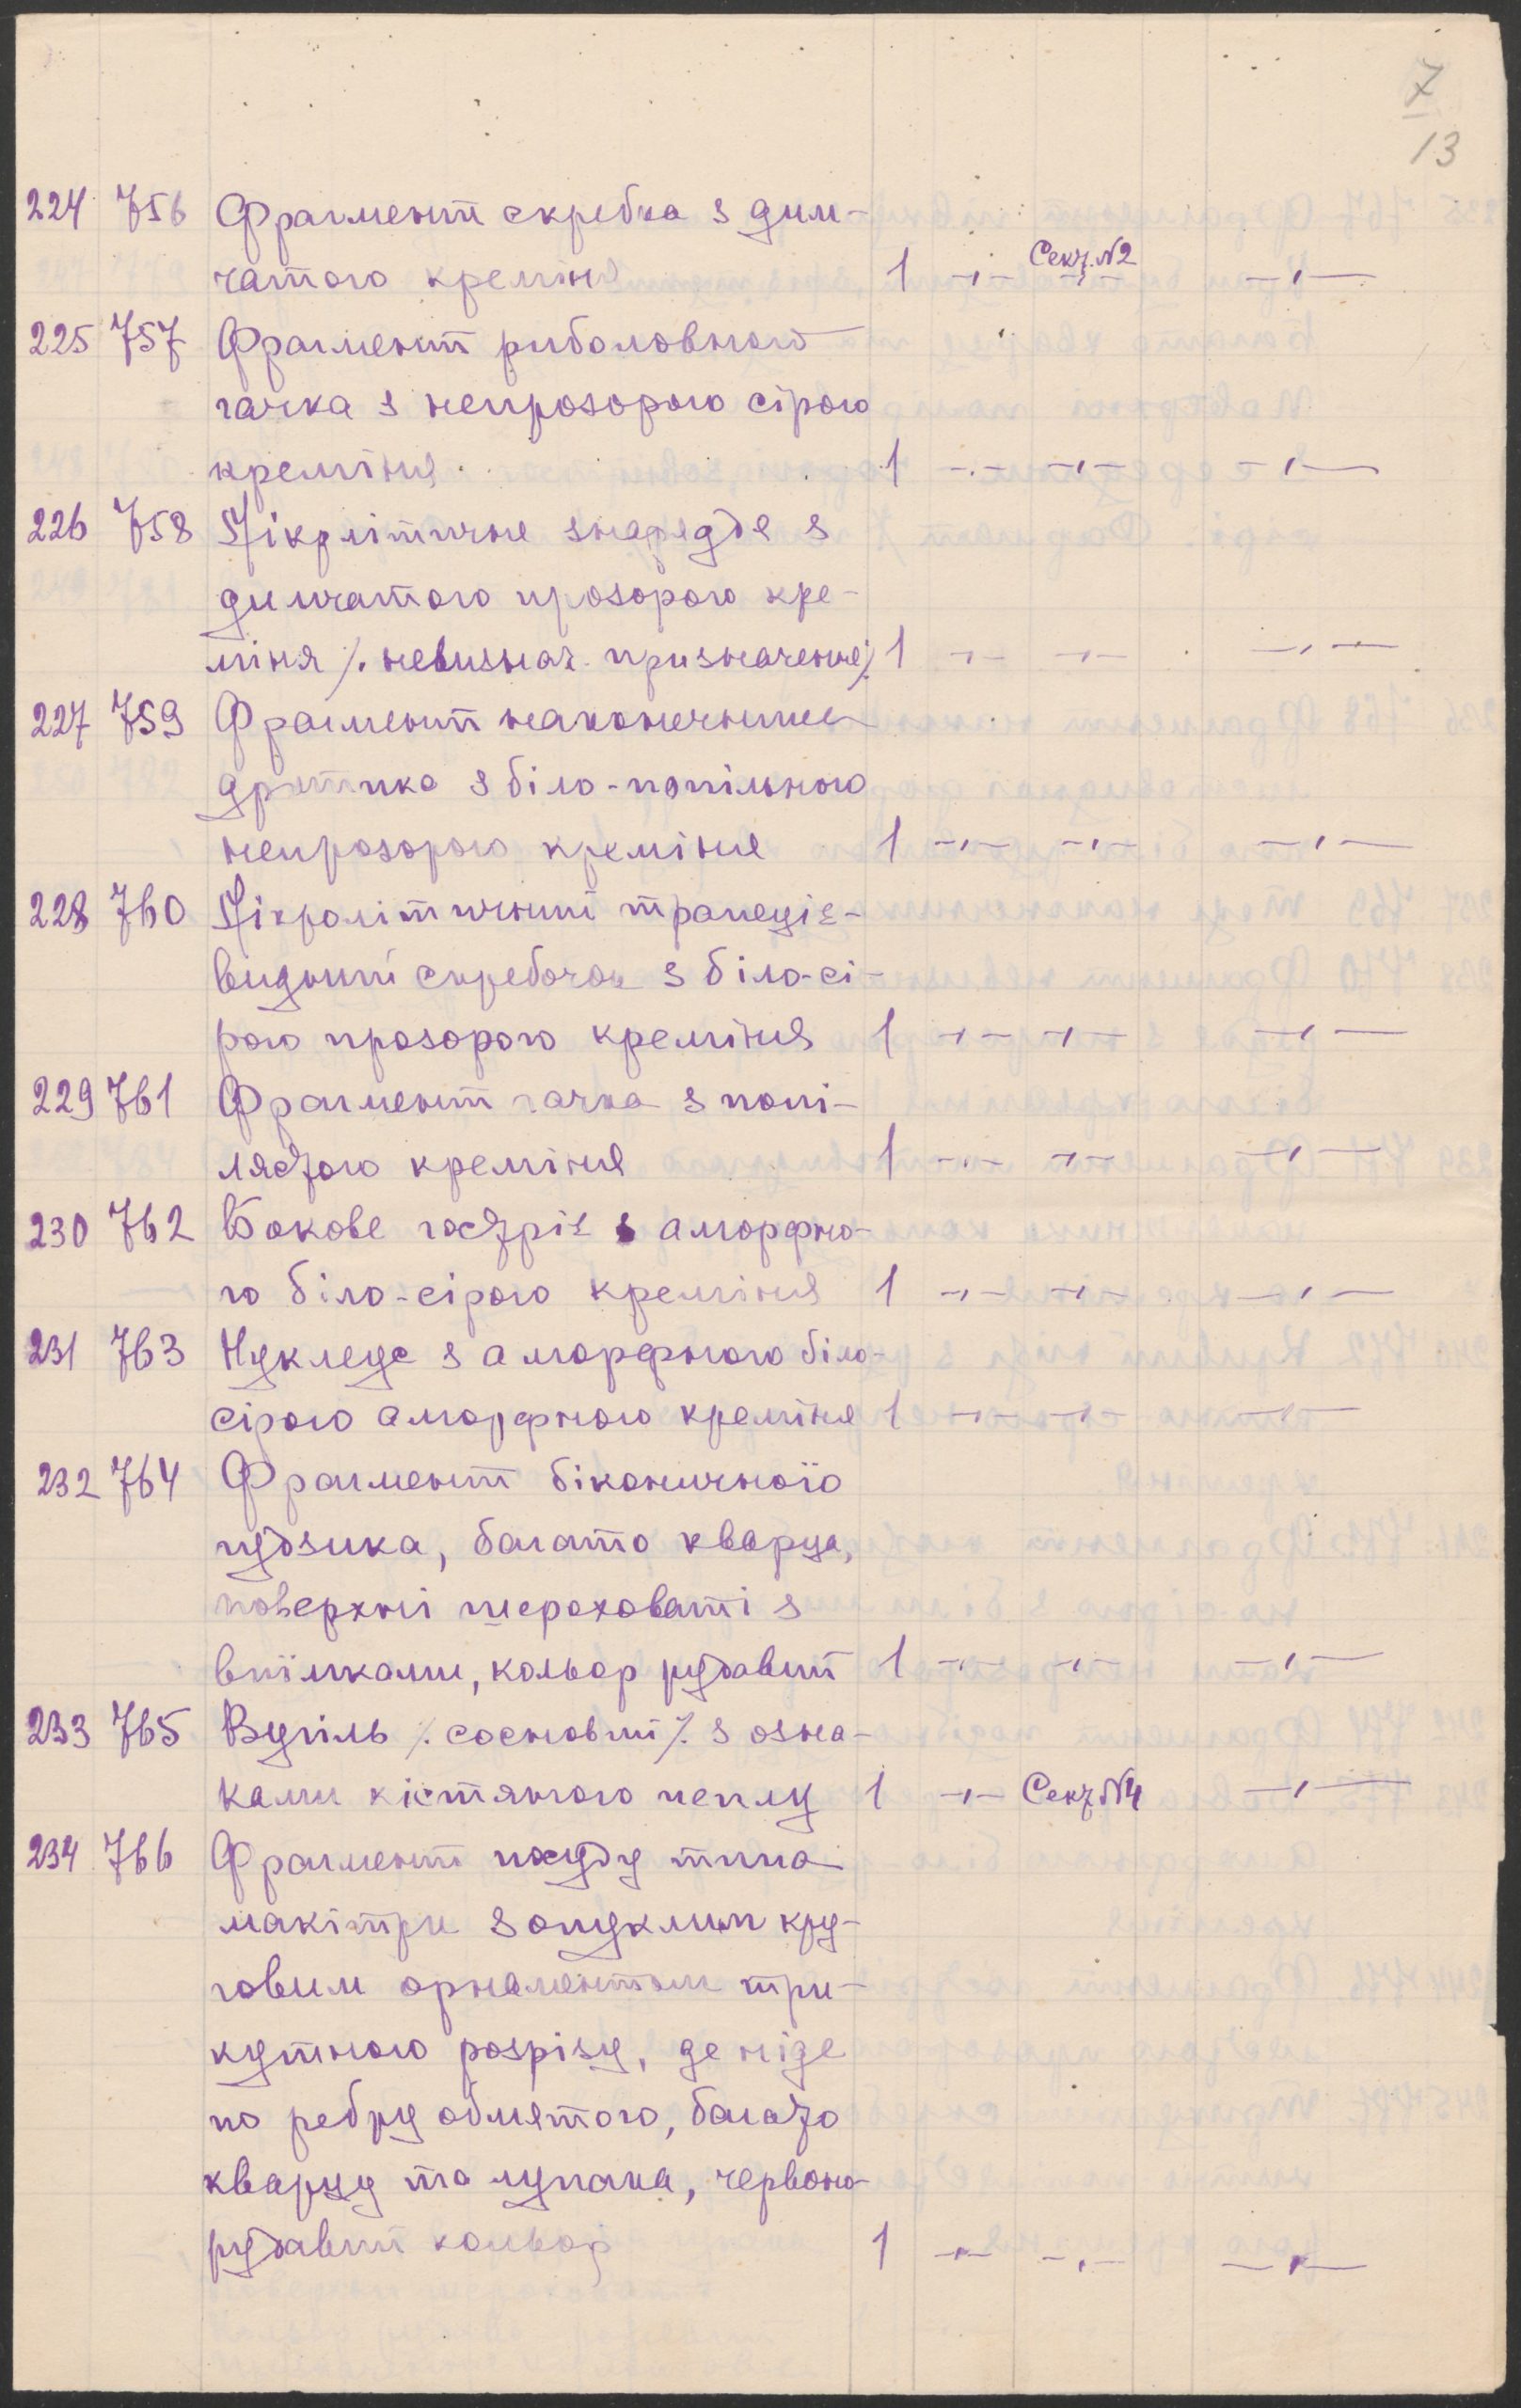 7
13
224 756 Фрагмент скребка з дим-
чатого креміня 1 -„- Секц. №2 -„-
225 757 Фрагмент риболовного
гачка з непрозорого сірого
креміня 1 -„- -„- -„-
226 758 Мікрлітичне знаряддя з
димчатого прозорого кре-
міня /. невизнач. призначення/. 1 -„- -„- -„-
227 759 Фрагмент наконечника
дротика з біло-попільного
непрозорого креміня 1 -„- -„- -„-
228 760 Мікролітичний трапеціє-
видний скребочок з біло-сі-
рого прозорого креміня 1 -„- -„- -„-
229 761 Фрагмент гачка з попі-
лястого креміня 1 -„- -„- -„-
230 762 Бокове гостріє з аморфно-
го біло-сірого креміня 1 -„- -„- -„-
231 763 Нуклеус з аморфного біло-
сірого аморфного креміня 1 -„- -„- -„-
232 764 Фрагмент біконичного
гудзика, багато кварца,
поверхні шероховаті з
виїмками, кольор рудавий 1 -„- -„- -„-
233 765 Вугіль /. сосновий /. з озна-
ками кістяного попілу 1 -„- Секц. №4 -„-
234 766 Фрагмент посуду типа
макітри з опуклим кру-
говим орнаментом три-
кутного розрізу, де ніде
по ребру обмятого, багато
кварцу та лупака, червоно-
рудавий кольор 1 -„- -„- -„-